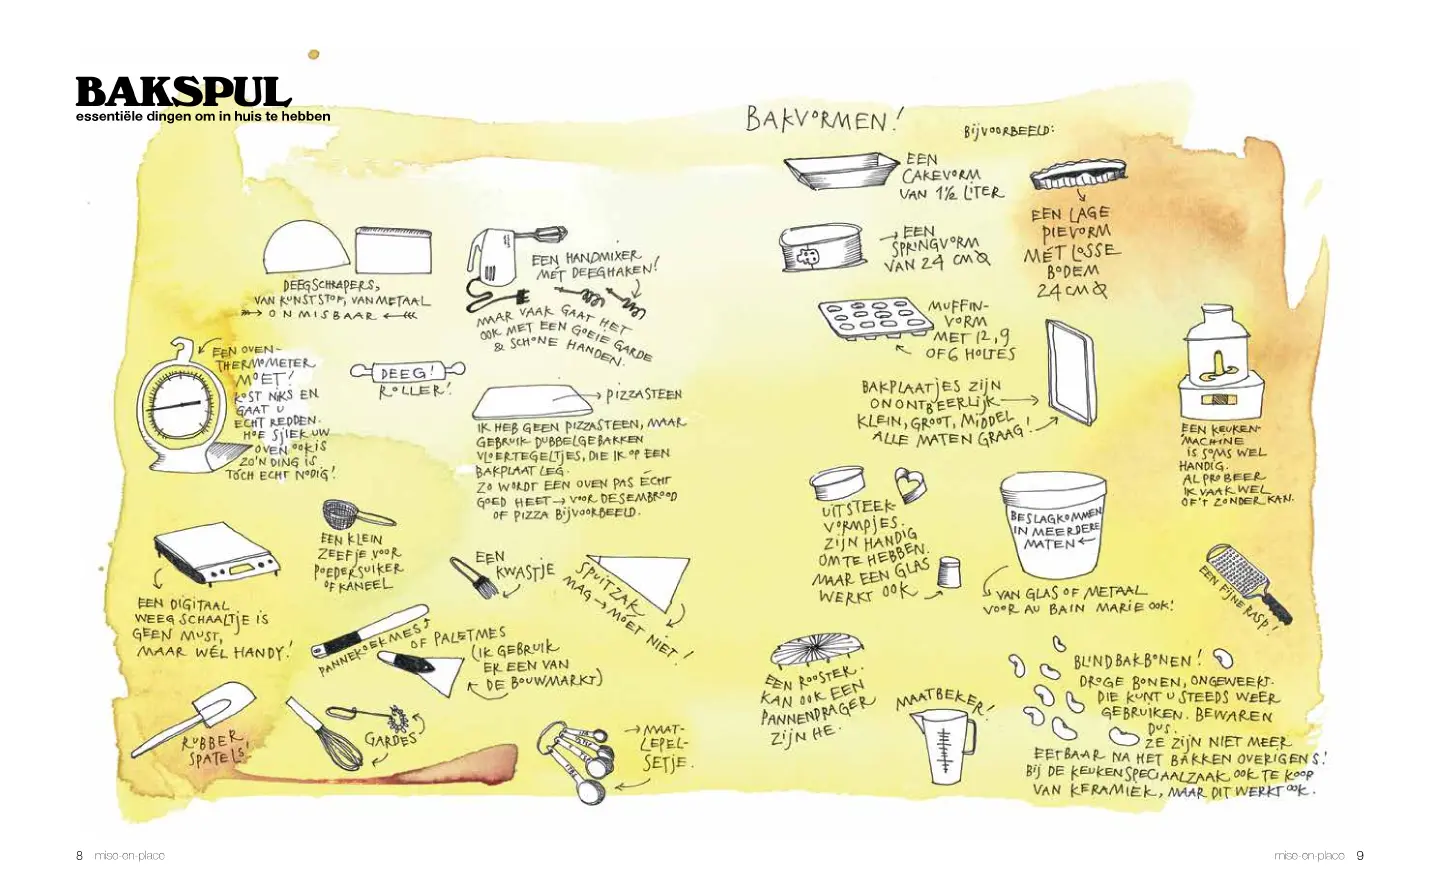 BAKSPUL
essentiële dingen om in huis te hebben
DEEGSCHRAPERS,
VAN KUNSTSTOF, VAN METAAL
ONMISBAAR
EEN HANDMIXER
MÉT DEEGHAKEN!
MAAR VAAK GAAT HET
OOK MET EEN GOEIE GARDE
& SCHONE HANDEN.
EEN OVEN-
THERMOMETER
MOET!
KOST NIKS EN
GAAT U
ECHT REDDEN.
HOE SJIEK UW
OVEN OOK IS
ZO'N DING IS
TÓCH ECHT NODIG!
DEEG!
ROLLER!
PIZZASTEEN
IK HEB GEEN PIZZASTEEN, MAAR
GEBRUIK DUBBELGEBAKKEN
VLOERTEGELTJES, DIE IK OP EEN
BAKPLAAT LEG.
ZO WORDT EEN OVEN PAS ÉCHT
GOED HEET → VOOR DESEMBROOD
OF PIZZA BIJVOORBEELD.
EEN KLEIN
ZEEFJE VOOR
POEDERSUIKER
OF KANEEL
EEN DIGITAAL
WEEGSCHAALTJE IS
GEEN MUST,
MAAR WÉL HANDY!
EEN
KWASTJE
SPUITZAK
MAG → MOET NIET!
PANNEKOEKMES
OF PALETMES
(IK GEBRUIK
ER EEN VAN
DE BOUWMARKT)
RUBBER
SPATELS!
GARDES
MAAT-
LEPEL-
SETJE.
BAKVORMEN!
BIJVOORBEELD:
EEN
CAKEVORM
VAN 1½ LITER
EEN LAGE
PIEVORM
MÉT LOSSE
BODEM
24 CM
EEN
SPRINGVORM
VAN 24 CM
MUFFIN-
VORM
MET 12, 9
OF 6 HOLTES
BAKPLAATJES ZIJN
ONONTBEERLIJK
KLEIN, GROOT, MIDDEL
ALLE MATEN GRAAG!
EEN KEUKEN-
MACHINE
IS SOMS WEL
HANDIG.
AL PROBEER
IK VAAK WEL
OF 'T ZONDER KAN.
UITSTEEK-
VORMPJES.
ZIJN HANDIG
OM TE HEBBEN.
MAAR EEN GLAS
WERKT OOK
BESLAGKOMMEN
IN MEERDERE
MATEN ←
VAN GLAS OF METAAL
VOOR AU BAIN MARIE OOK!
EEN FIJNE RASP!
EEN ROOSTER.
KAN OOK EEN
PANNENDRAGER
ZIJN HE.
MAATBEKER!
BLINDBAKBONEN!
DROGE BONEN, ONGEWEEKT.
DIE KUNT U STEEDS WEER
GEBRUIKEN. BEWAREN
DUS.
ZE ZIJN NIET MEER
EETBAAR NA HET BAKKEN OVERIGENS!
BIJ DE KEUKENSPECIAALZAAK OOK TE KOOP
VAN KERAMIEK, MAAR DIT WERKT OOK.
8 mise-en-place
mise-en-place 9